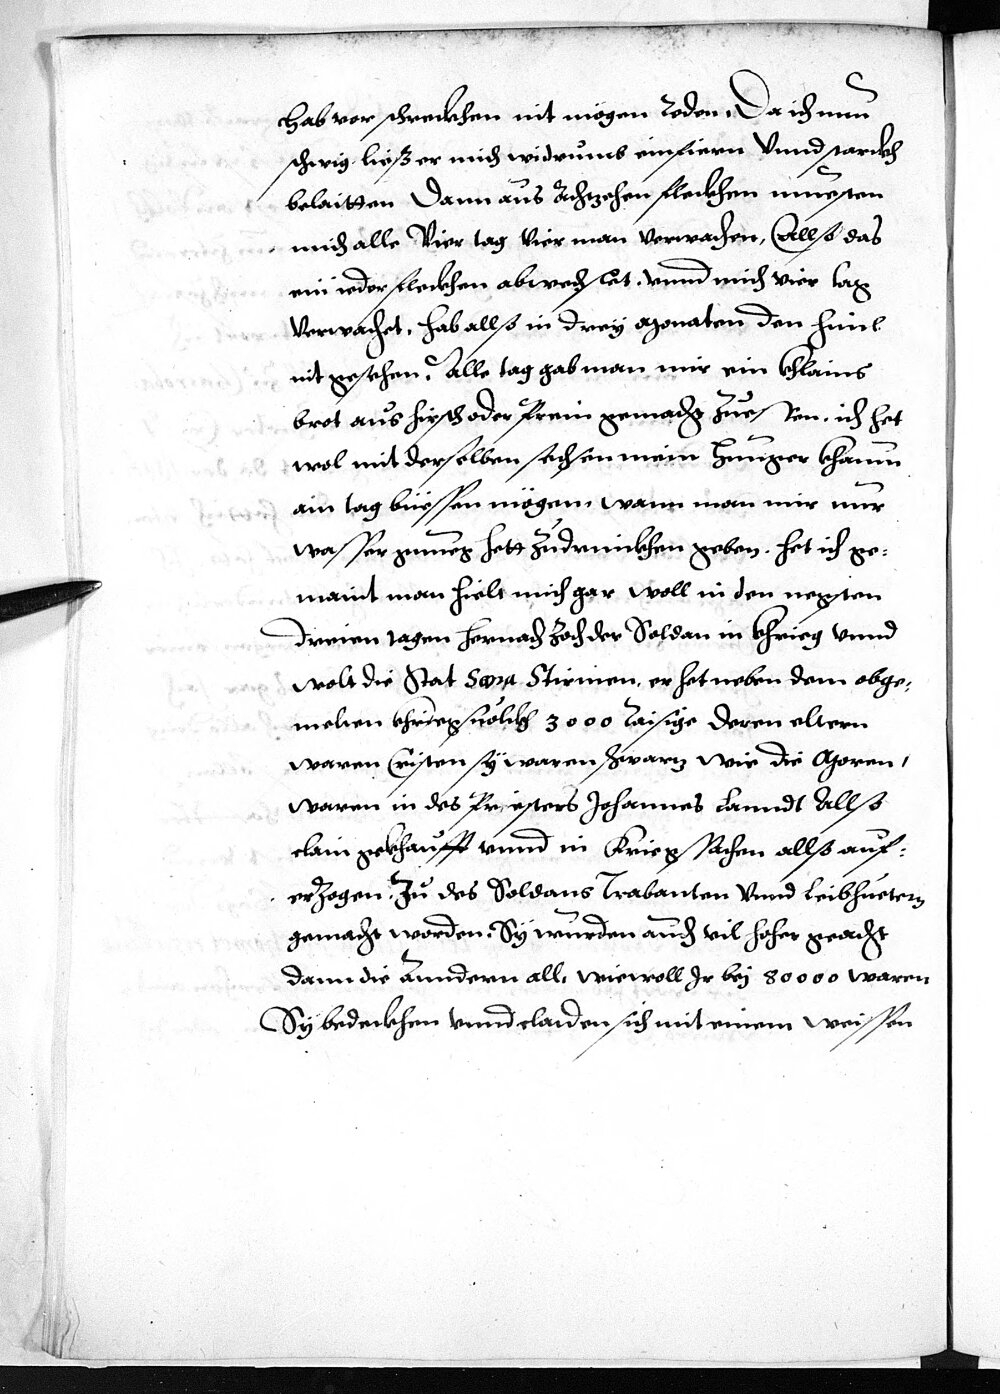 hab vor schreckhen nit mögen reden. Da ich nun
schwig ließ er mich widrumb einfiern Vnnd starckh
belaitten Dann aus Achtzehen fleckhen muesten
mich alle Vier tag Vier man verwachen, Allso das
ein ieder fleckhen abwechslet. vnnd mich vier tag
Verwachet. hab allso in drey Monaten den himl
nit gesehen. Alle tag gab man mir ein khlains
brot aus hirsch oder Prein gemacht zue essen. ich het
wol mit derselben sechsen mein hunger khaum
ain tag büessen mögen, wann man mir nur
wasser gnueg hett zudrinckhen geben. het ich ge-
maint man hielt mich gar woll in den negsten
dreien tagen hernach zoch der Soldan in khrieg vnnd
wolt die Stat Sana Stirmen. er het neben dem obge-
melten khriegsuolckh 3000 Raisige deren eltern
waren Cristen sÿ waren schwarz wie die Moren,
waren in des Priesters Johannes Lanndt Allso
clain gekhaufft vnnd in Kriegssachen allso auf-
erzogen. Zu des Soldans Trabanten Vnnd leibhuetern
gemacht worden. Sÿ wurden auch vil höher geacht
dann die Anndern all. wiewoll Ir bej 80000 waren
Sÿ bedeckhen vnnd claiden sich mit einem weissen